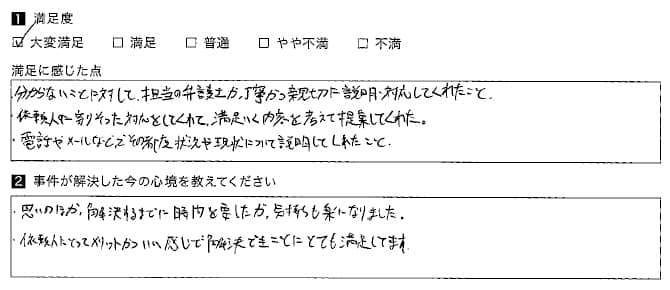 1 満足度
☑ 大変満足 □ 満足 □ 普通 □ やや不満 □ 不満
満足に感じた点
・分からないことに対して、担当の弁護士が、丁寧かつ親切に説明・対応してくれたこと。
・依頼人に寄りそった対応をしてくれて、満足いく内容を考えて提案してくれた。
・電話やメールなどでその都度状況や現状について説明してくれたこと。
2 事件が解決した今の心境を教えてください
・思いのほか、解決するまでに時間を要したが、気持ちも楽になりました。
・依頼人にとってメリットかついい感じで解決できたことにとても満足してます。